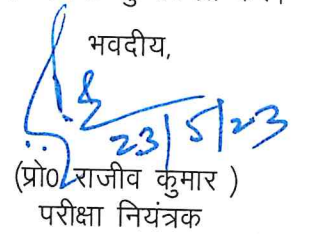 भवदीय,
23/5/23
(प्रो0 राजीव कुमार )
परीक्षा नियंत्रक